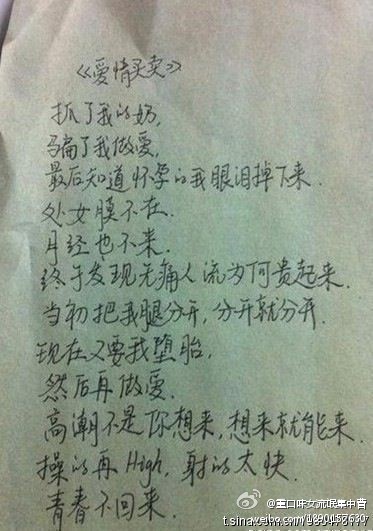 《爱情买卖》
抓了我的奶,
骗了我做爱,
最后知道怀孕的我眼泪掉下来.
处女膜不在.
月经也不来.
终于发现无痛人流为何贵起来.
当初把我腿分开,分开就分开.
现在又要我堕胎,
然后再做爱.
高潮不是你想来,想来就能来.
操的再High,射的太快.
青春不回来.
@重口味女流氓集中营
weibo.com/1890457637